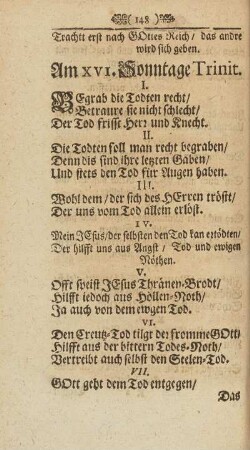 ( 148 )
Trachtt erst nach GOttes Reich/ das andre
wird sich geben.
Am XVI. Sonntage Trinit.
I.
BEgrab die Todten recht/
Betraure sie nicht schlecht/
Der Tod frisst Herr und Knecht.
II.
Die Todten soll man recht begraben/
Denn dis sind ihre letzten Gaben/
Und stets den Tod für Augen haben.
III.
Wohl dem/ der sich des HErren tröst/
Der uns vom Tod allein erlöst.
IV.
Mein JEsus/ der selbsten den Tod kan ertödten/
Der hilfft uns aus Angst/ Tod und ewigen
Nöthen.
V.
Offt speist JEsus Thränen-Brodt/
Hilfft iedoch aus Höllen-Noth/
Ja auch von dem ewgen Tod.
VI.
Den Creutz-Tod tilgt der fromme GOtt/
Hilfft aus der bittern Todes-Noth/
Vertreibt auch selbst den Seelen-Tod.
VII.
GOtt geht dem Tod entgegen/
Das